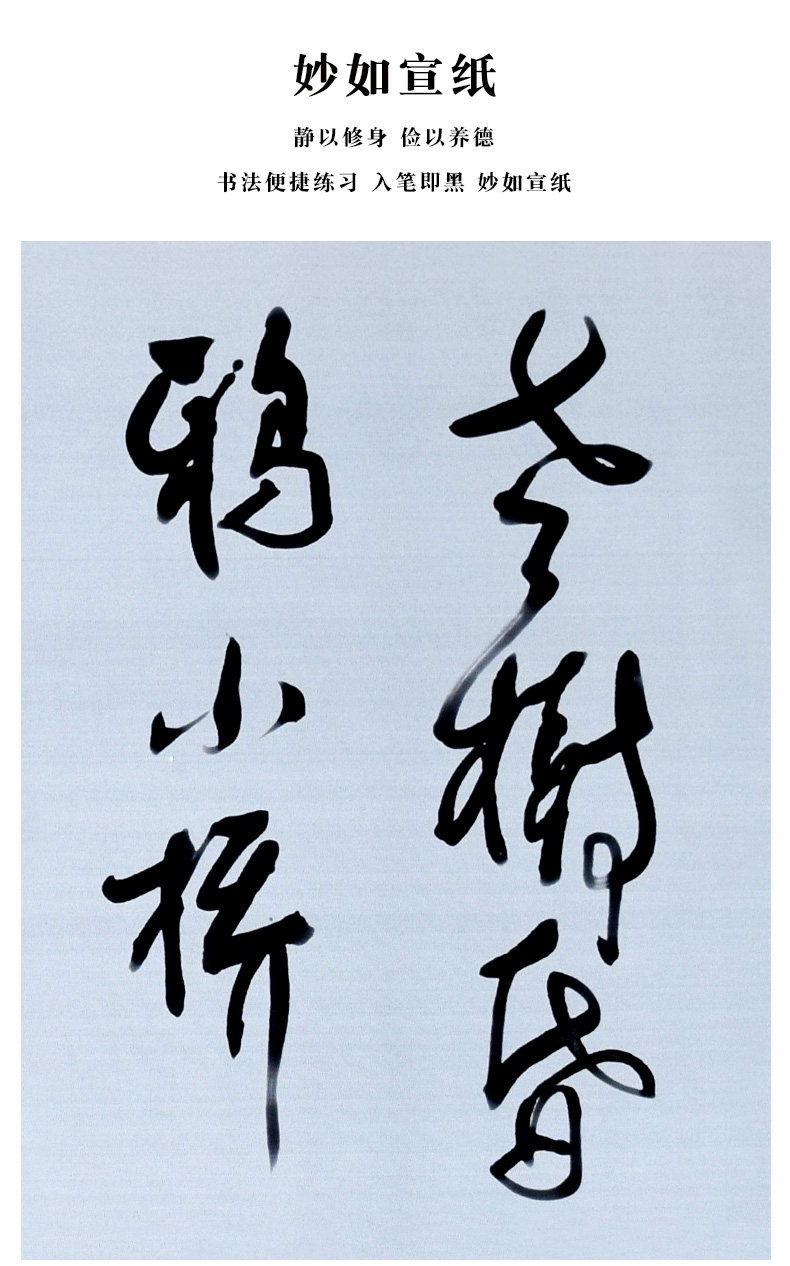 妙如宣纸
静以修身 俭以养德
书法便捷练习 入笔即黑 妙如宣纸
老樹昏
鸦小桥